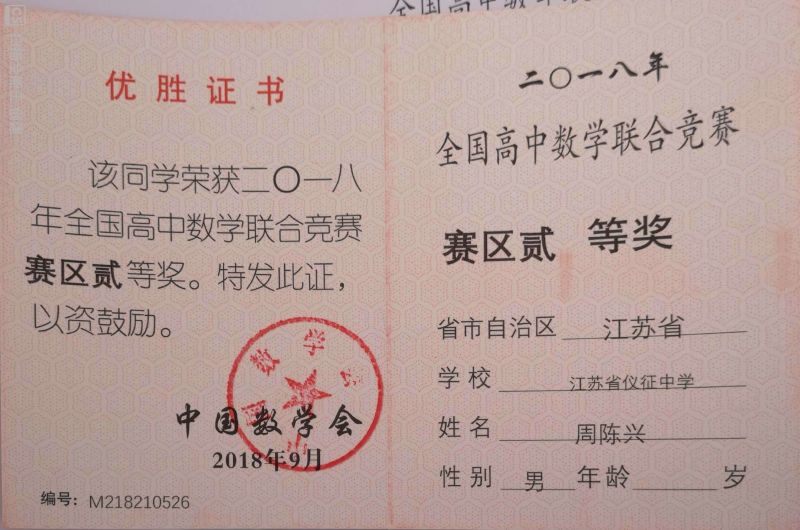 优胜证书
该同学荣获二〇一八
年全国高中数学联合竞赛
赛区贰等奖。特发此证，
以资鼓励。
中国数学会
中国数学会
2018年9月
编号：M218210526
二〇一八年
全国高中数学联合竞赛
赛区贰 等奖
省市自治区 江苏省
学校 江苏省仪征中学
姓名 周陈兴
性别 男 年龄 岁